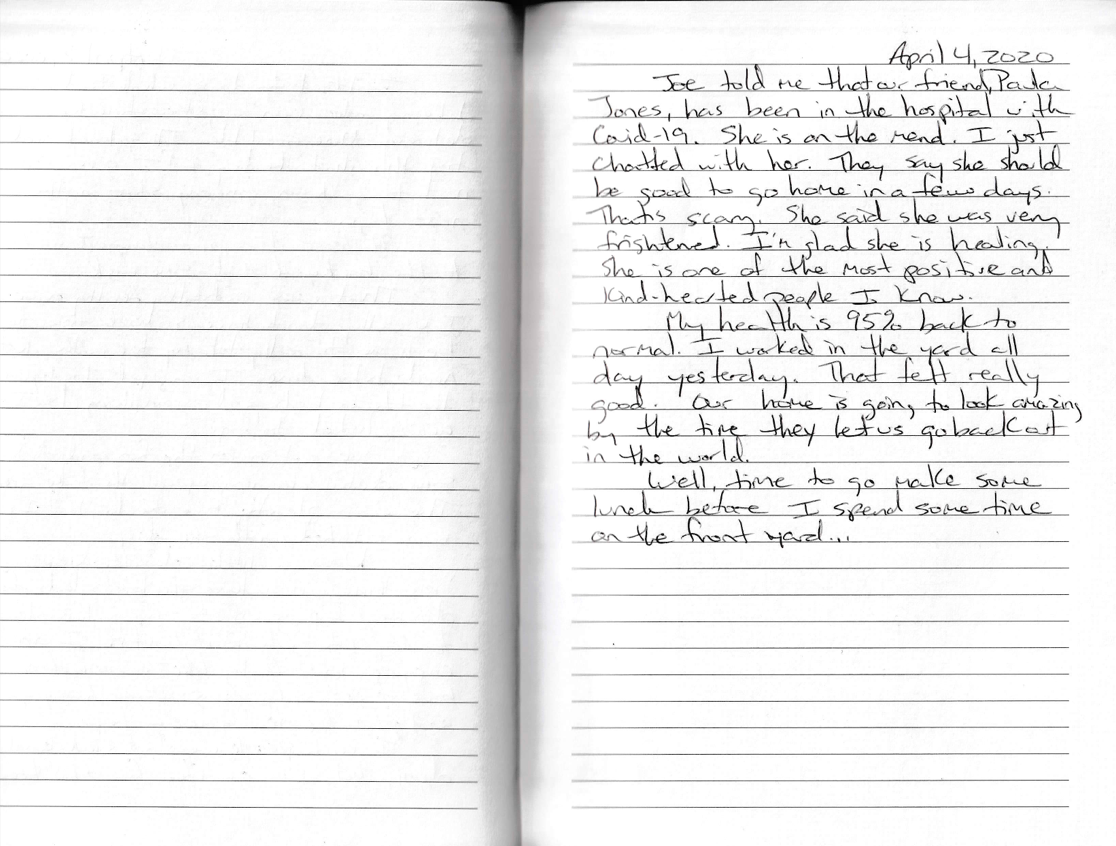 April 4, 2020
Joe told me that our friend, Paula
Jones, has been in the hospital with
Covid-19. She is on the mend. I just
chatted with her. They say she should
be good to go home in a few days.
That's scary. She said she was very
frightened. I'm glad she is healing.
She is one of the most positive and
kind-hearted people I know.
My health is 95% back to
normal. I worked in the yard all
day yesterday. That felt really
good. Our home is going to look amazing
by the time they let us go back out
in the world.
Well, time to go make some
lunch before I spend some time
on the front yard...